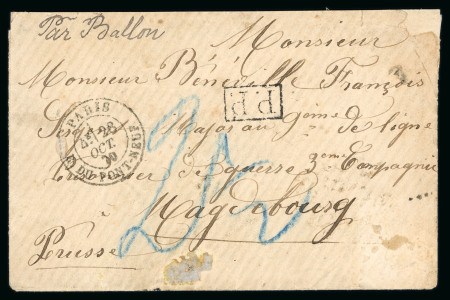 Par Ballon
Monsieur
Monsieur Bénéville François
Sergt Major au 9eme de ligne
prisonnier de guerre 3eme Compagnie
Magdebourg
Prusse
P.P.
PARIS
26
OCT.
70
R. DU PONT-NEUF
2½